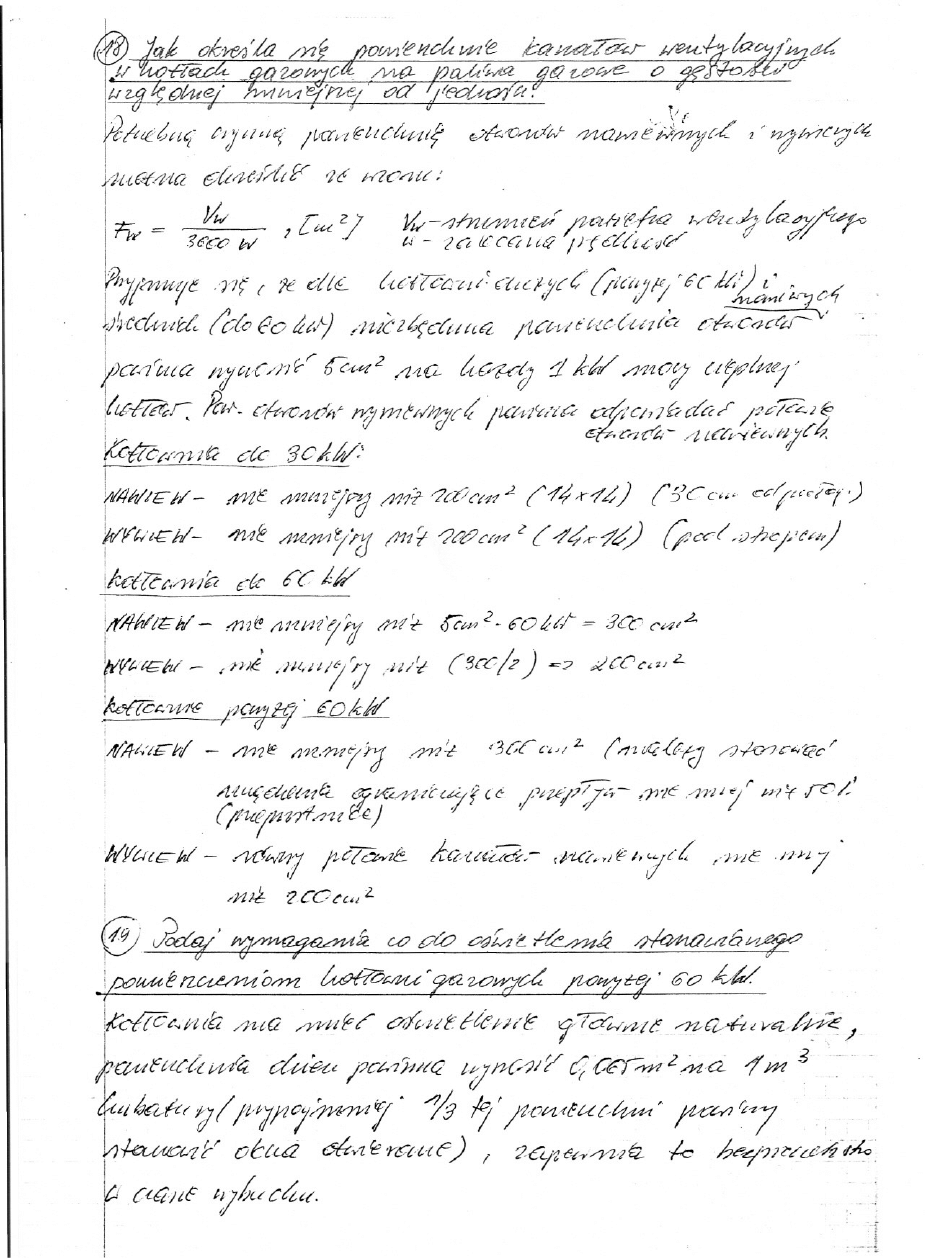 18 Jak określa się powierzchnie kanałów wentylacyjnych
w kotłach gazowych na paliwa gazowe o gęstości
względnej mniejszej od jedności?
Potrzebną czynną powierzchnię otworów nawiewnych i wywiewnych
można określić ze wzoru:
Fw = Vw / 3600 W , [m²] Vw - strumień powietrza wentylacyjnego
w - zalecana prędkość
Przyjmuje się, że dla kotłowni dużych (powyżej 60 kW) i
średnich (do 60 kW) niezbędna powierzchnia otworów nawiewnych
powinna wynosić 5cm² na każdy 1 kW mocy cieplnej
kotłów. Pow. otworów wywiewnych powinna odpowiadać połowie
otworów nawiewnych.
Kotłownia do 30 kW:
NAWIEW - nie mniejszy niż 200 cm² (14x14) (30 cm od podłogi)
WYWIEW - nie mniejszy niż 200 cm² (14x14) (pod stropem)
kotłownia do 60 kW
NAWIEW - nie mniejszy niż 5cm² · 60 kW = 300 cm²
WYWIEW - nie mniejszy niż (300/2) => 200 cm²
kotłownie powyżej 60 kW
NAWIEW - nie mniejszy niż 300 cm² (należy stosować
urządzenia ograniczające przepływ nie mniej niż 50%
(przepustnice)
WYWIEW - równy połowie kanałów nawiewnych nie mniej
niż 200 cm²
19 Podaj wymagania co do oświetlenia stawianego
pomieszczeniom kotłowni gazowych powyżej 60 kW.
Kotłownia ma mieć oświetlenie głównie naturalne,
powierzchnia okien powinna wynosić 0,065 m² na 1 m³
kubatury (przynajmniej 1/3 tej powierzchni powinny
stanowić okna otwierane), zapewnia to bezpieczeństwo
w czasie wybuchu.